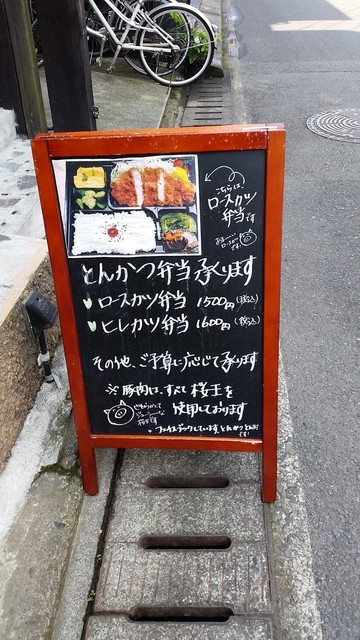 こちらは、
ロースカツ
弁当です
とんかつ弁当承ります
ロースカツ弁当 1500円(税込)
ヒレカツ弁当 1600円(税込)
その他、ご予算に応じて承ります
※豚肉は、すべて桜王を
使用しております